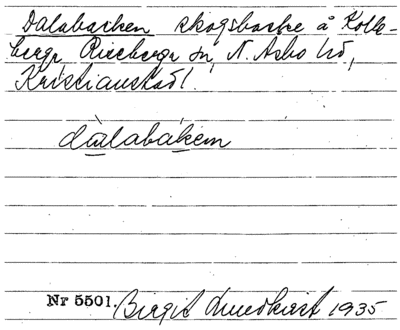 Dalabacken skogsbacke å Kolle-
berga Riseberga sn, N. Åsbo hd,
Kristianstad l.
dàlabákem
Nr 5501. Birgit Lundkvist 1935